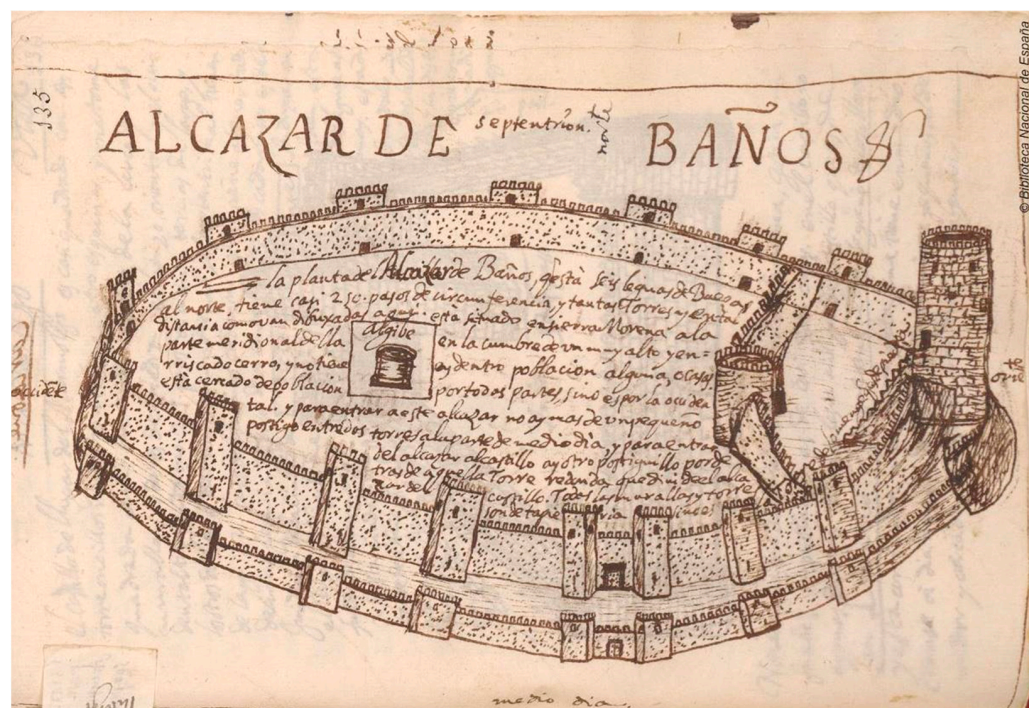 135
ALCAZAR DE BAÑOS
septentrion.
norte
la planta del Alcazar de Baños, q̃ està seis leguas de Baesa
al norte, tiene casi 250. pasos de circumferencia, y tantas Torres, y
distancia como van dibuxadas aqui. està situado en sierra Morena, a la
parte meridional della en la cumbre de vn muy alto y en=
rriscado cerro, y no tiene ay dentro poblacion alguna, o casas
està cercado de poblacion por todas partes, sino es por la occiden
tal. y para entrar a este alcazar no ay mas de vn pequeño
postigo entre dos torres a la parte de medio dia, y para entrar
del alcaçar al castillo ay otro postiguillo por de
tras de aquella torre redonda que divide el alca
zar del castillo. Todas las murallas y torres
son de tapieria
Algibe
occidẽte
oriẽte
medio dia,
© Biblioteca Nacional de España